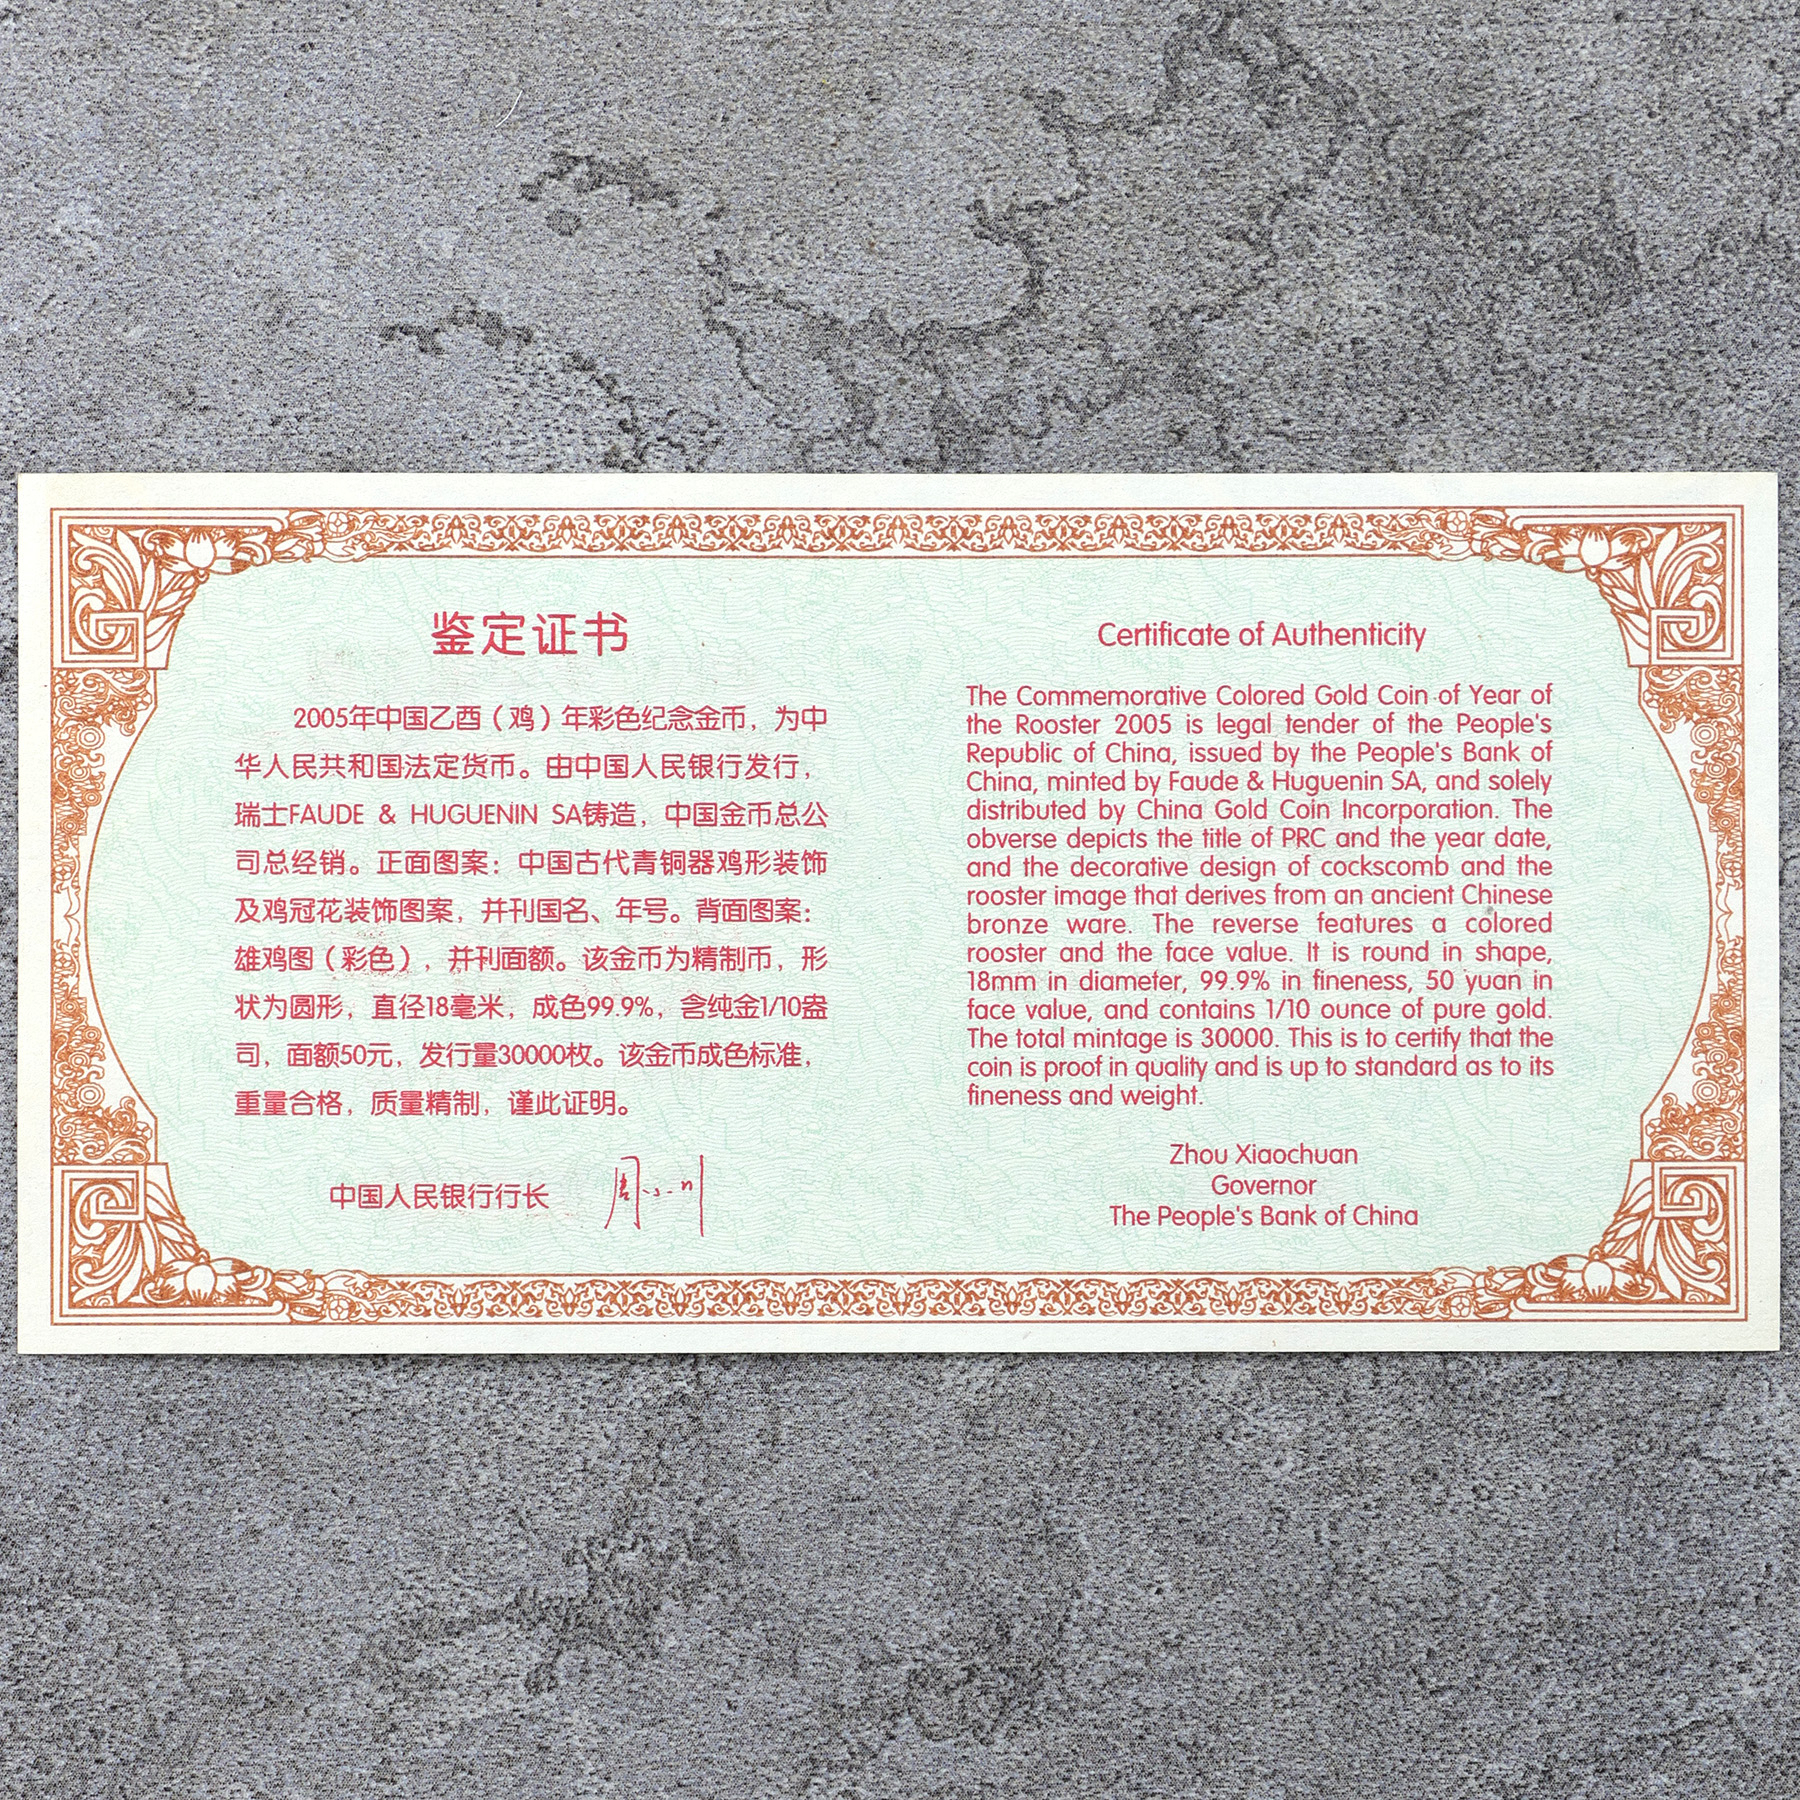 鉴定证书
2005年中国乙酉（鸡）年彩色纪念金币，为中
华人民共和国法定货币。由中国人民银行发行，
瑞士FAUDE & HUGUENIN SA铸造，中国金币总公
司总经销。正面图案：中国古代青铜器鸡形装饰
及鸡冠花装饰图案，并刊国名、年号。背面图案：
雄鸡图（彩色），并刊面额。该金币为精制币，形
状为圆形，直径18毫米，成色99.9%，含纯金1/10盎
司，面额50元，发行量30000枚。该金币成色标准，
重量合格，质量精制，谨此证明。
中国人民银行行长 周小川
Certificate of Authenticity
The Commemorative Colored Gold Coin of Year of
the Rooster 2005 is legal tender of the People's
Republic of China, issued by the People's Bank of
China, minted by Faude & Huguenin SA, and solely
distributed by China Gold Coin Incorporation. The
obverse depicts the title of PRC and the year date,
and the decorative design of cockscomb and the
rooster image that derives from an ancient Chinese
bronze ware. The reverse features a colored
rooster and the face value. It is round in shape,
18mm in diameter, 99.9% in fineness, 50 yuan in
face value, and contains 1/10 ounce of pure gold.
The total mintage is 30000. This is to certify that the
coin is proof in quality and is up to standard as to its
fineness and weight.
Zhou Xiaochuan
Governor
The People's Bank of China